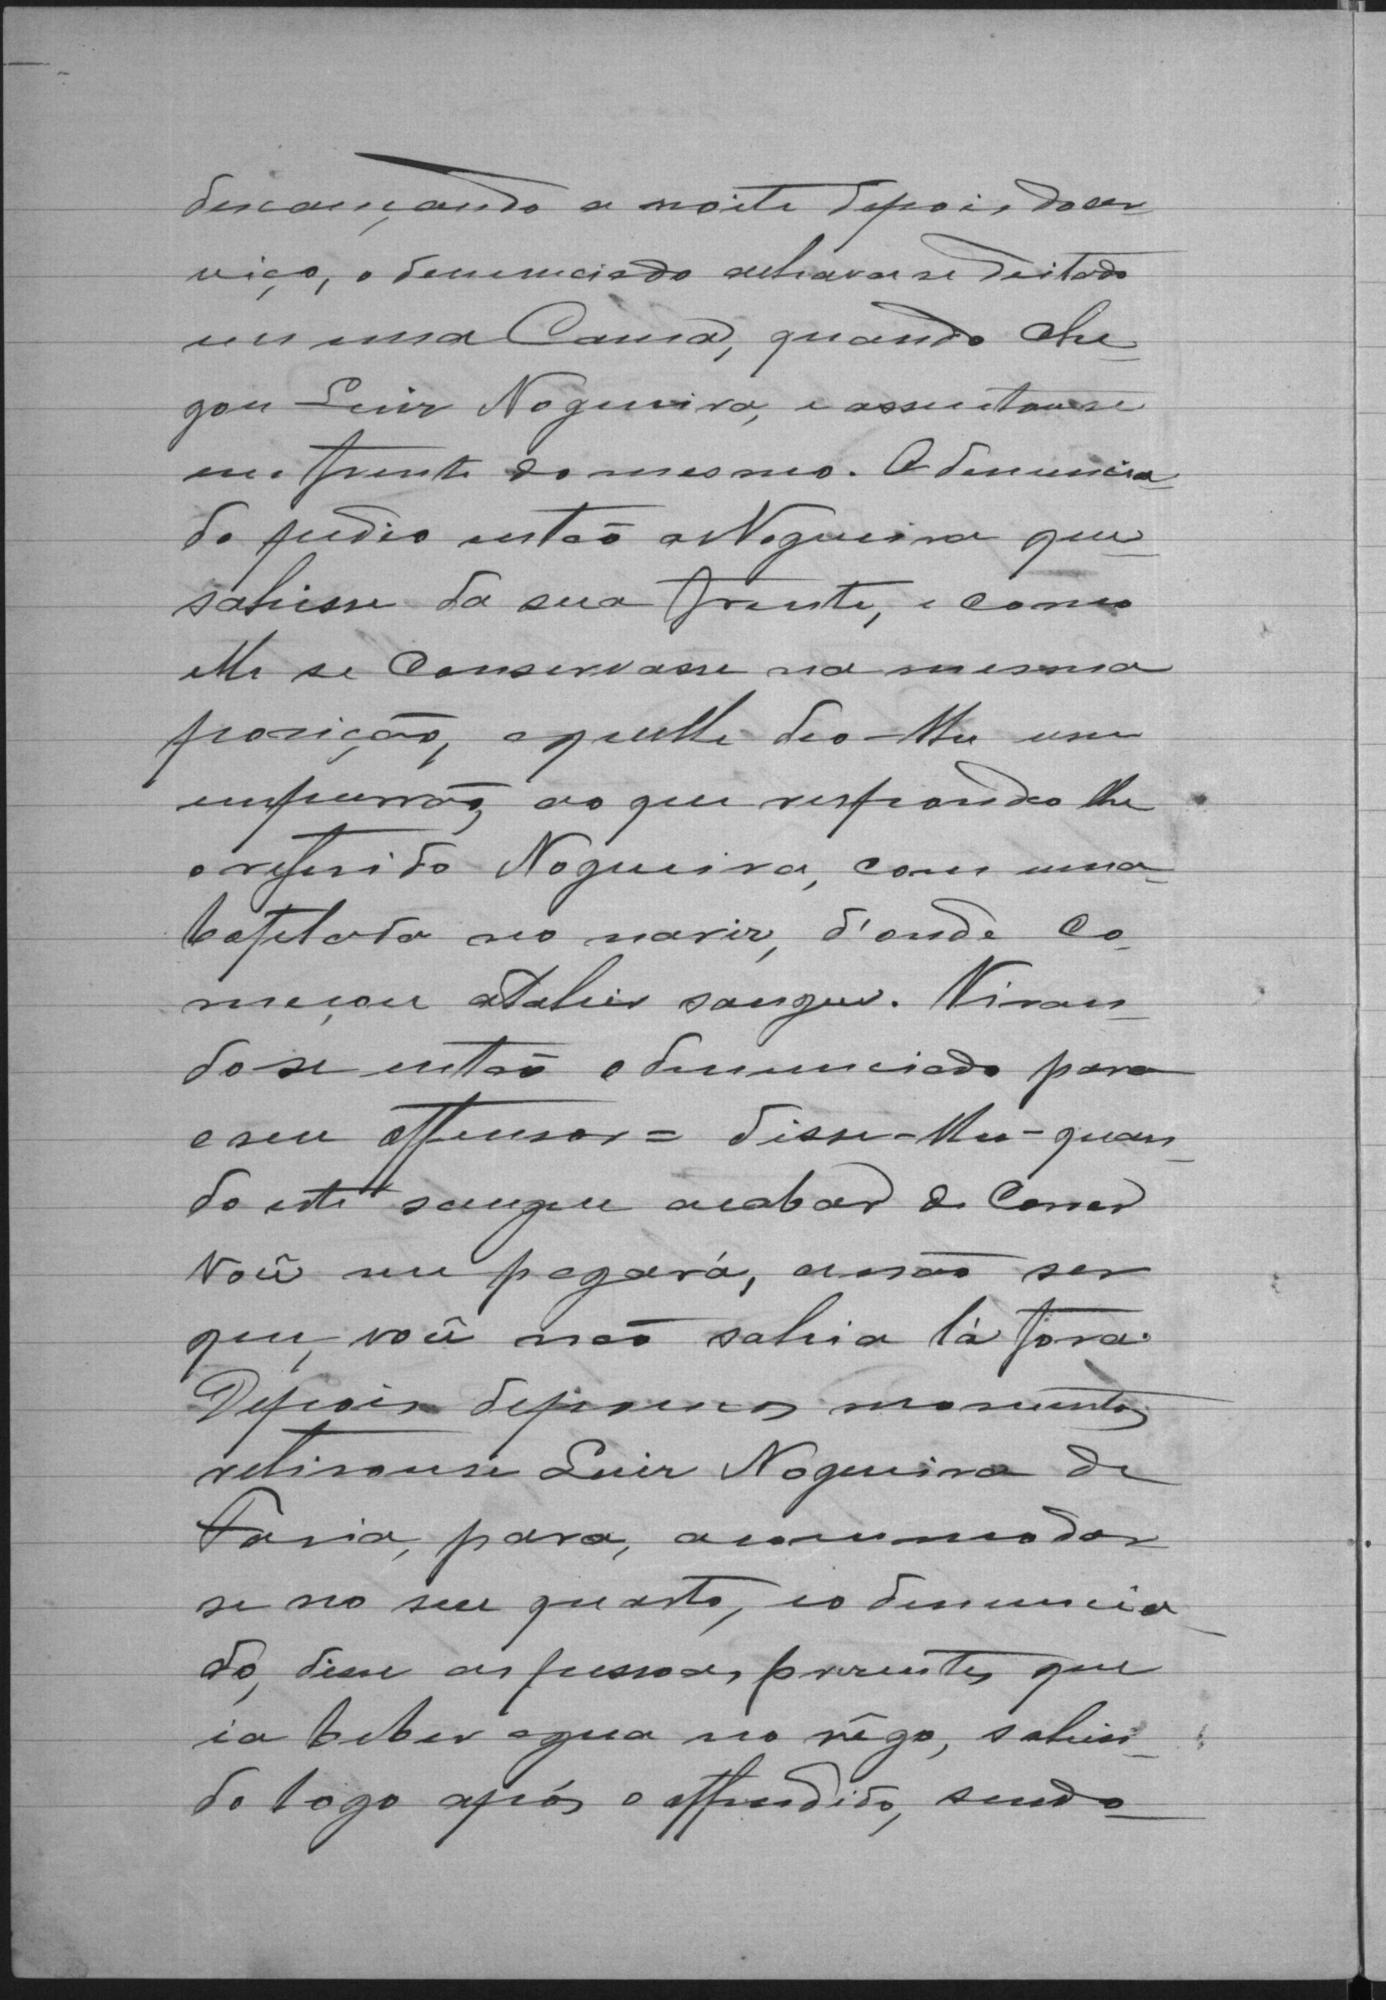 descançando a noite depois do ser
viço, o denunciado achava se deitado
em uma Cama, quando che
gou Luiz Nogueira, e assentou se
em frente do mesmo. O denuncia
do pedio então a Nogueira que
sahisse da sua frente, e como
elle se conservasse na mesma
posição, aquelle deo-lhe um
empurrão, ao que respondeo lhe
o referido Nogueira, com uma
bofetada no nariz, d'onde co
meçou a sahir sangue. Viran
do se então o denunciado para
o seu offensor = disse-lhe - quan
do este sangue acabar de correr
você me pagará, a não ser
que, você não sahia lá fora.
Depois de poucos momentos
retirou se Luiz Nogueira de
Faria, para, acommodar
se no seu quarto, e o denuncia
do, disse as pessoas presentes que
ia beber agua no rêgo, sahin
do logo após o offendido, sendo